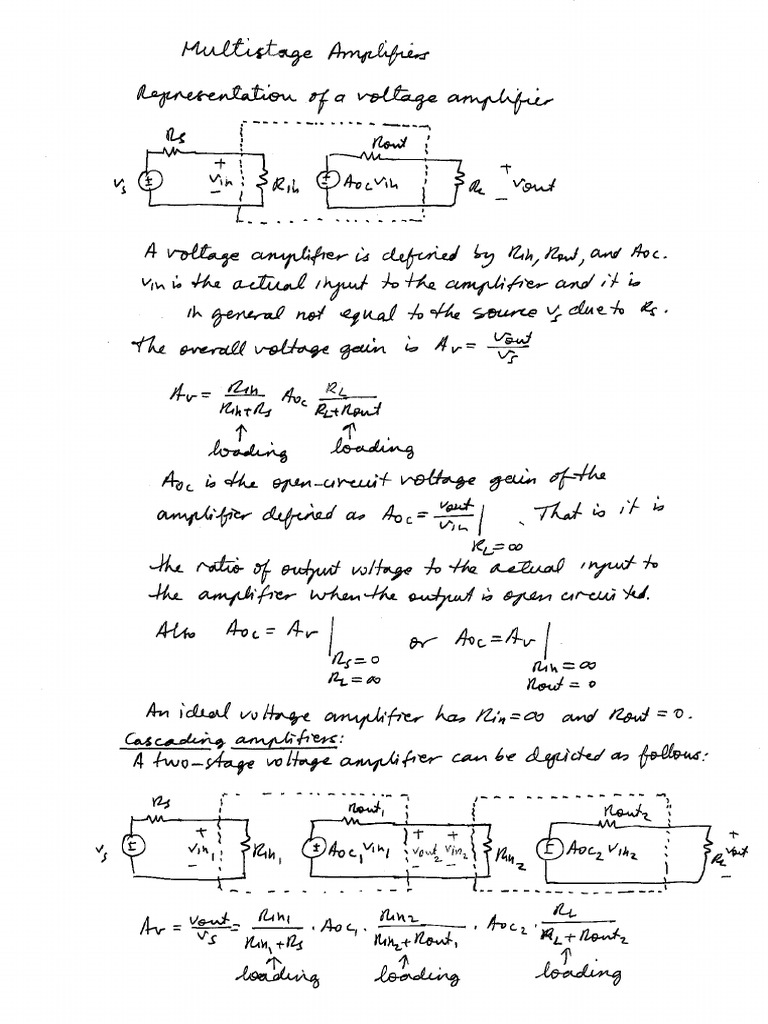 Multistage Amplifiers
Representation of a voltage amplifier
Rs
Rout
vs
+
vin
-
Rin
Aocvin
RL
+
vout
-
A voltage amplifier is defined by Rin, Rout, and Aoc.
vin is the actual input to the amplifier and it is
in general not equal to the source vs due to Rs.
The overall voltage gain is Av = vout/vs
Av = Rin/(Rin+Rs) Aoc RL/(RL+Rout)
↑ ↑
loading loading
Aoc is the open-circuit voltage gain of the
amplifier defined as Aoc = vout/vin | RL=∞ . That is it is
the ratio of output voltage to the actual input to
the amplifier when the output is open circuited.
Also Aoc = Av | Rs=0 RL=∞ or Aoc = Av | Rin=∞ Rout=0
An ideal voltage amplifier has Rin=∞ and Rout=0.
Cascading amplifiers:
A two-stage voltage amplifier can be depicted as follows:
Rs
Rout1
Rout2
vs
+
vin1
-
Rin1
Aoc1vin1
+
vout2
-
+
vin2
-
Rin2
Aoc2vin2
RL
+
vout
-
Av = vout/vs = Rin1/(Rin1+Rs) · Aoc1 · Rin2/(Rin2+Rout1) · Aoc2 · RL/(RL+Rout2)
↑ ↑ ↑
loading loading loading